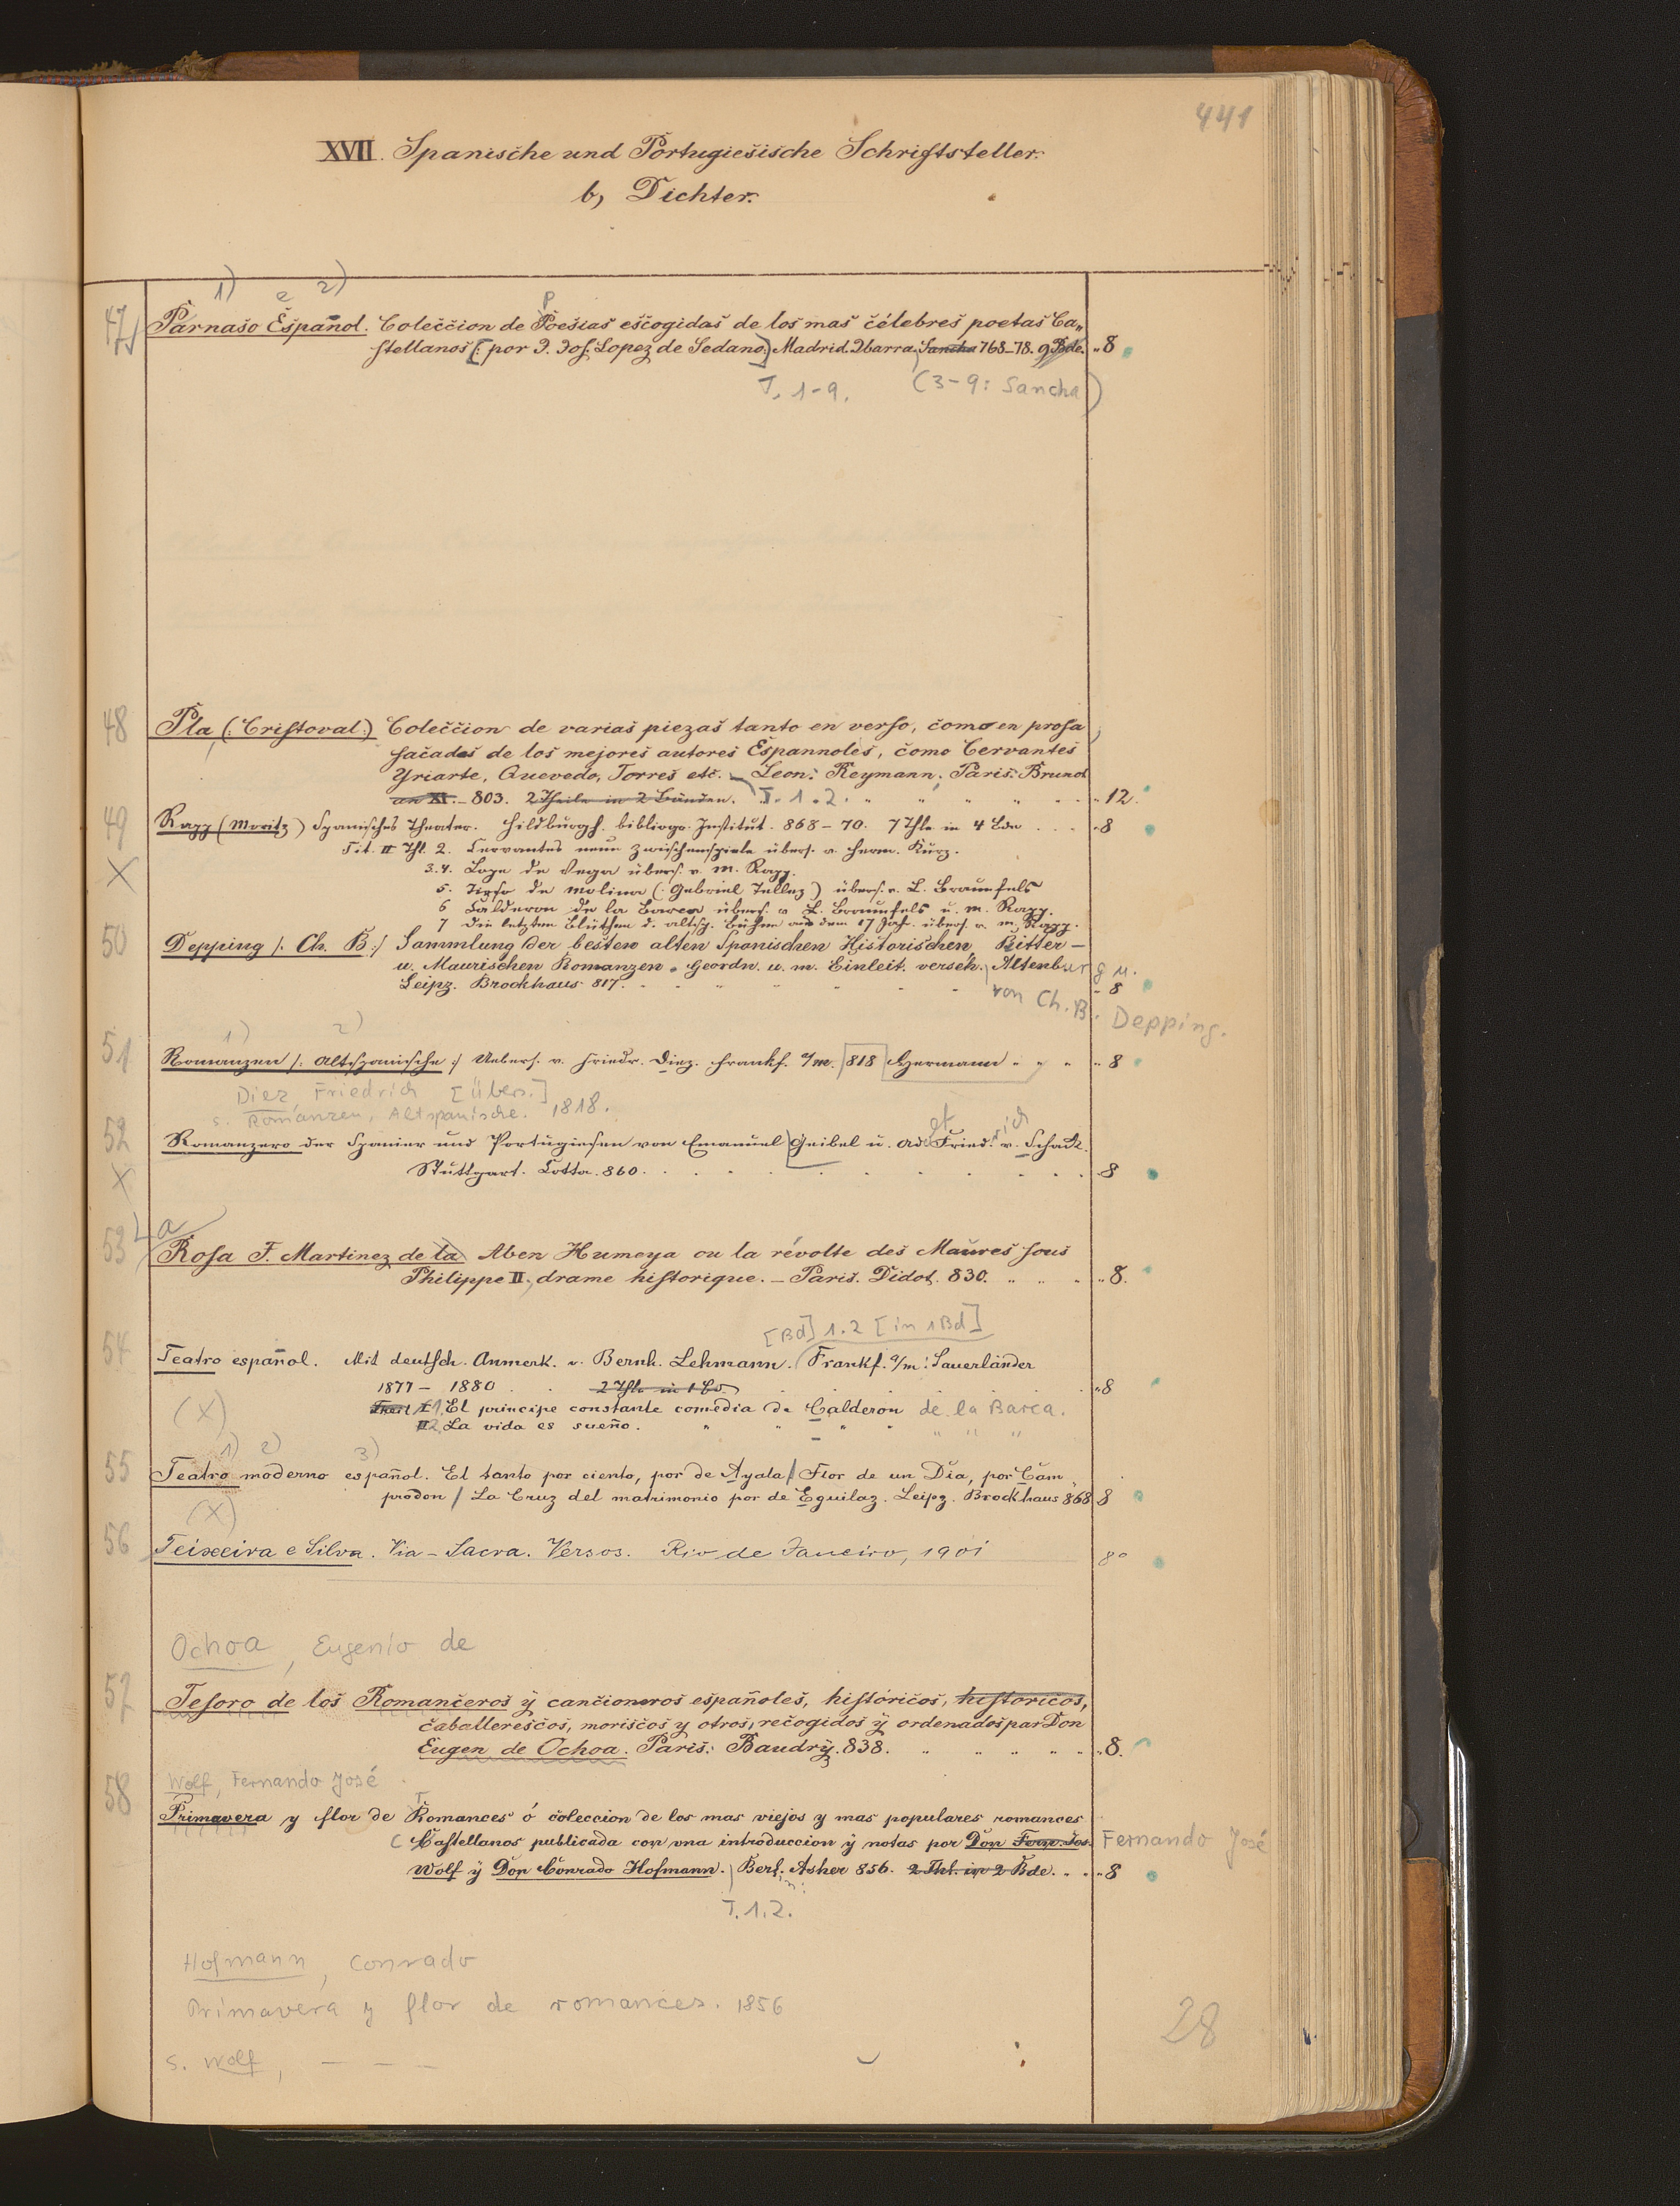 441
XVII. Spanische und Portugiesische Schriftsteller.
b, Dichter.
1) e 2)
47 Parnaso Español. Coleccion de Poesias escogidas de los mas célebres poetas Ca„
stellanos [: por D. Jos. Lopez de Sedano:] Madrid. Ibarra. Sancha 768–78. 9 Bde. „ 8
T. 1-9. (3-9: Sancha)
48 Pla (: Cristoval:) Coleccion de varias piezas tanto en verso, como en prosa
sacadas de los mejores autores Espannoles, como Cervantes
Yriarte, Quevedo, Torres etc. – Leon: Reymann; Paris: Brunot
an XI. – 803. 2 Theile in 2 Bänden. T. 1. 2. „ „ „ „ 12.
49 Rapp (Moritz) Spanisches Theater. Hildburgh. bibliogr. Institut. 868–70. 7 Thle in 4 Bdn . . . 8
X Tit. II Thl. 2. Cervantes neun Zwischenspiele übers. v. Herm. Kurz.
3.4. Lope de Vega übers. v. M. Rapp.
5. Tirso de Molina (: Gabriel Tellez) übers. v. L. Braunfels
6 Calderon de la Barca übers. v. L. Braunfels u. M. Rapp.
7 Die letzten Blüthen d. altsp. Bühne aus dem 17 Jah. übers. v. M. Rapp.
50 Depping /: Ch. B:/ Sammlung der besten alten Spanischen Historischen, Ritter –
u. Maurischen Romanzen. Geordn. u. m. Einleit. verseh. Altenburg u.
Leipz. Brockhaus 817. „ 8
von Ch. B. Depping.
1) 2)
51 Romanzen /: Altspanische :/ Uebers. v. Friedr. Diez. Frankf. a/M. 818 Hermann „ „ „ „ 8
Diez, Friedrich [Übers.]
s. Romanzen, Altspanische. 1818.
52 Romanzero der Spanier und Portugiesen von Emanuel Geibel u. Adolf Friedrich v. Schack.
X Stuttgart. Cotta. 860. . . . . . . 8
La
53 Rosa F. Martinez de la Aben Humeya ou la révolte des Maures sous
Philippe II., drame historique. – Paris. Didot. 830. „ „ „ 8.
[Bd] 1.2 [in 1 Bd]
54 Teatro español. Mit deutsch. Anmerk. v. Bernh. Lehmann. Frankf. a/M: Sauerländer
1877 – 1880 . . 2 Thle in 1 Bd. . . . . 8
(X) Theil I 1. El principe constante comedia de Calderon de la Barca.
II 2. La vida es sueño. „ „ „ „ „ „ „
1) 2) 3)
55 Teatro moderno español. El tanto por ciento, por de Ayala / Flor de un Dia, por Cam„
prodon / La Cruz del matrimonio por de Eguilaz. Leipz. Brockhaus 868 8
(X)
56 Teixeira e Silva. Via-Sacra. Versos. Rio de Janeiro, 1901 8°
Ochoa, Eugenio de
57 Tesoro de los Romanceros ÿ cancioneros españoles, históricos, historicos,
caballerescos, moriscos y otros, recogidos ÿ ordenados par Don
Eugen de Ochoa. Paris: Baudrÿ. 838. „ „ „ „ „ „ 8.
Wolf, Fernando José
58 Primavera y flor de Romances ó coleccion de los mas viejos y mas populares romances
Castellanos publicada con una introduccion ÿ notas por Don Fern. Jos. Fernando José
Wolf ÿ Don Conrado Hofmann. Berl. Asher 856. 2 Thl. in 2 Bde. . . „ 8
T. 1. 2.
Hofmann, Conrado
Primavera y flor de romances. 1856
28
s. Wolf, – – –